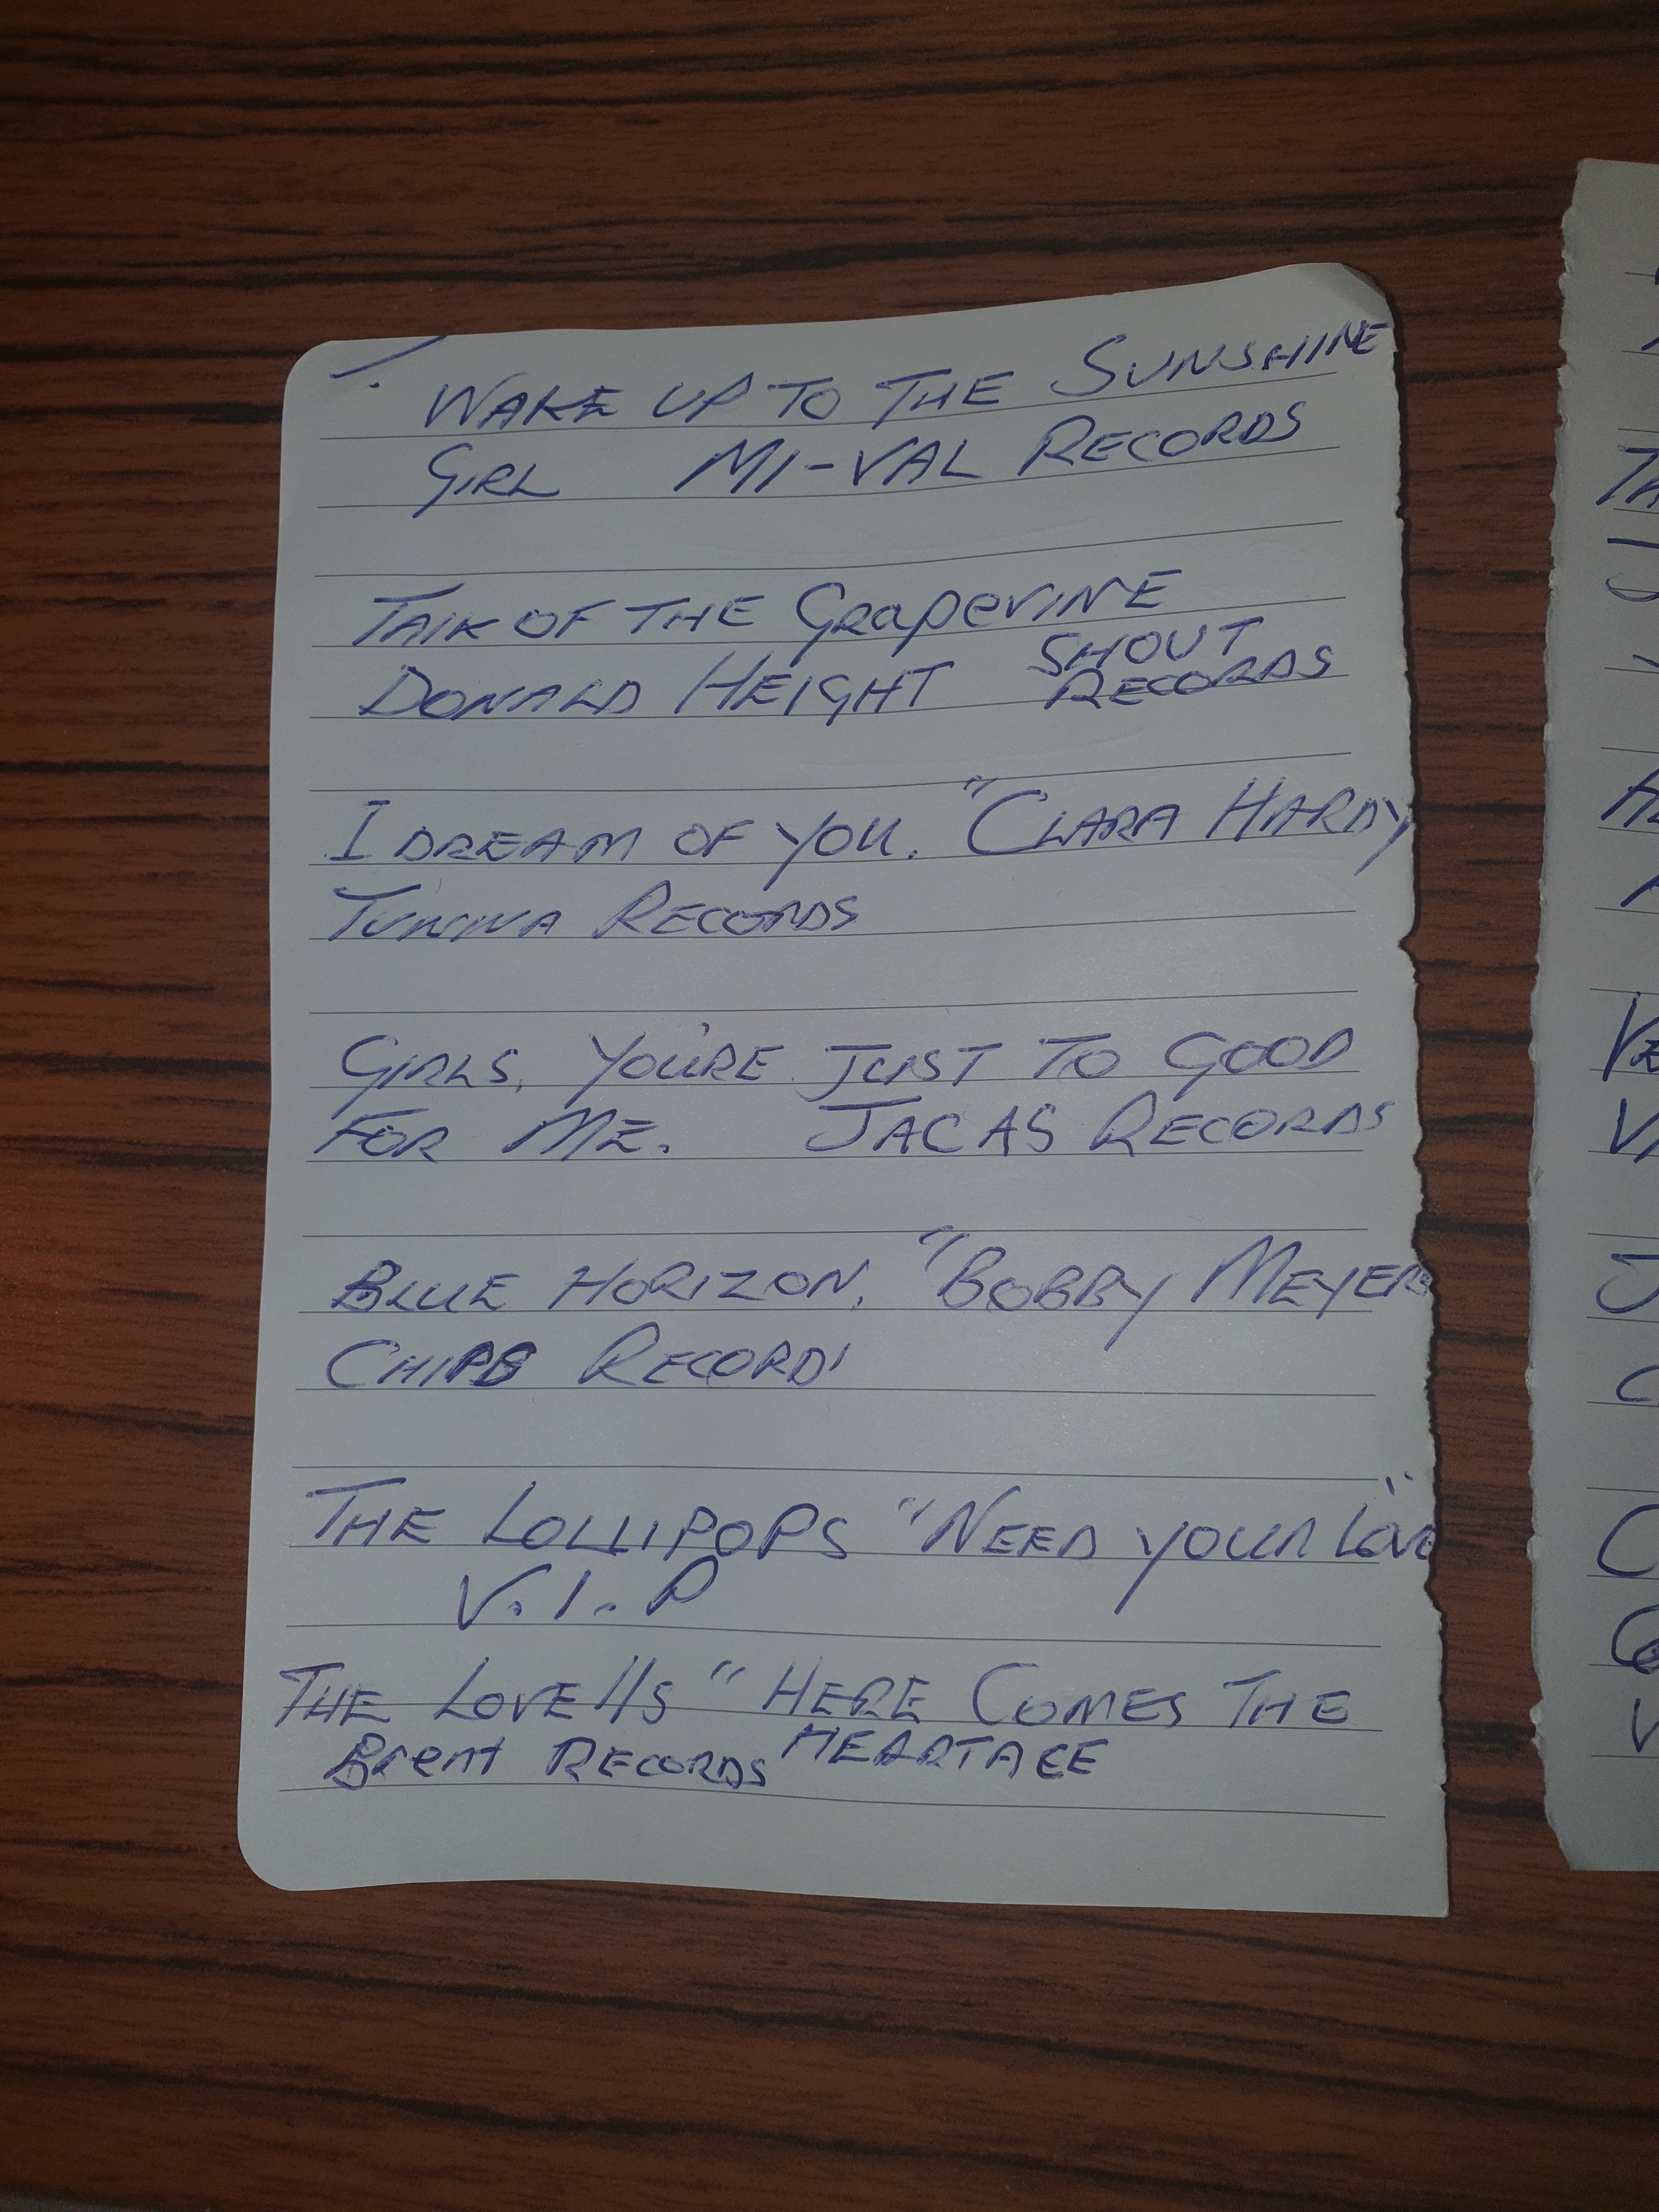 WAKE UP TO THE SUNSHINE
GIRL MI-VAL RECORDS
TALK OF THE GRAPEVINE
DONALD HEIGHT SHOUT
RECORDS
I DREAM OF YOU. "CLARA HARDY
TUNNA RECORDS
GIRLS, YOU'RE JUST TO GOOD
FOR ME. JACAS RECORDS
BLUE HORIZON, "BOBBY MEYERS
CHIPS RECORDS
THE LOLLIPOPS "NEED YOUR LOVE"
V.I.P
THE LOVELLS "HERE COMES THE
Brent RECORDS HEARTACE